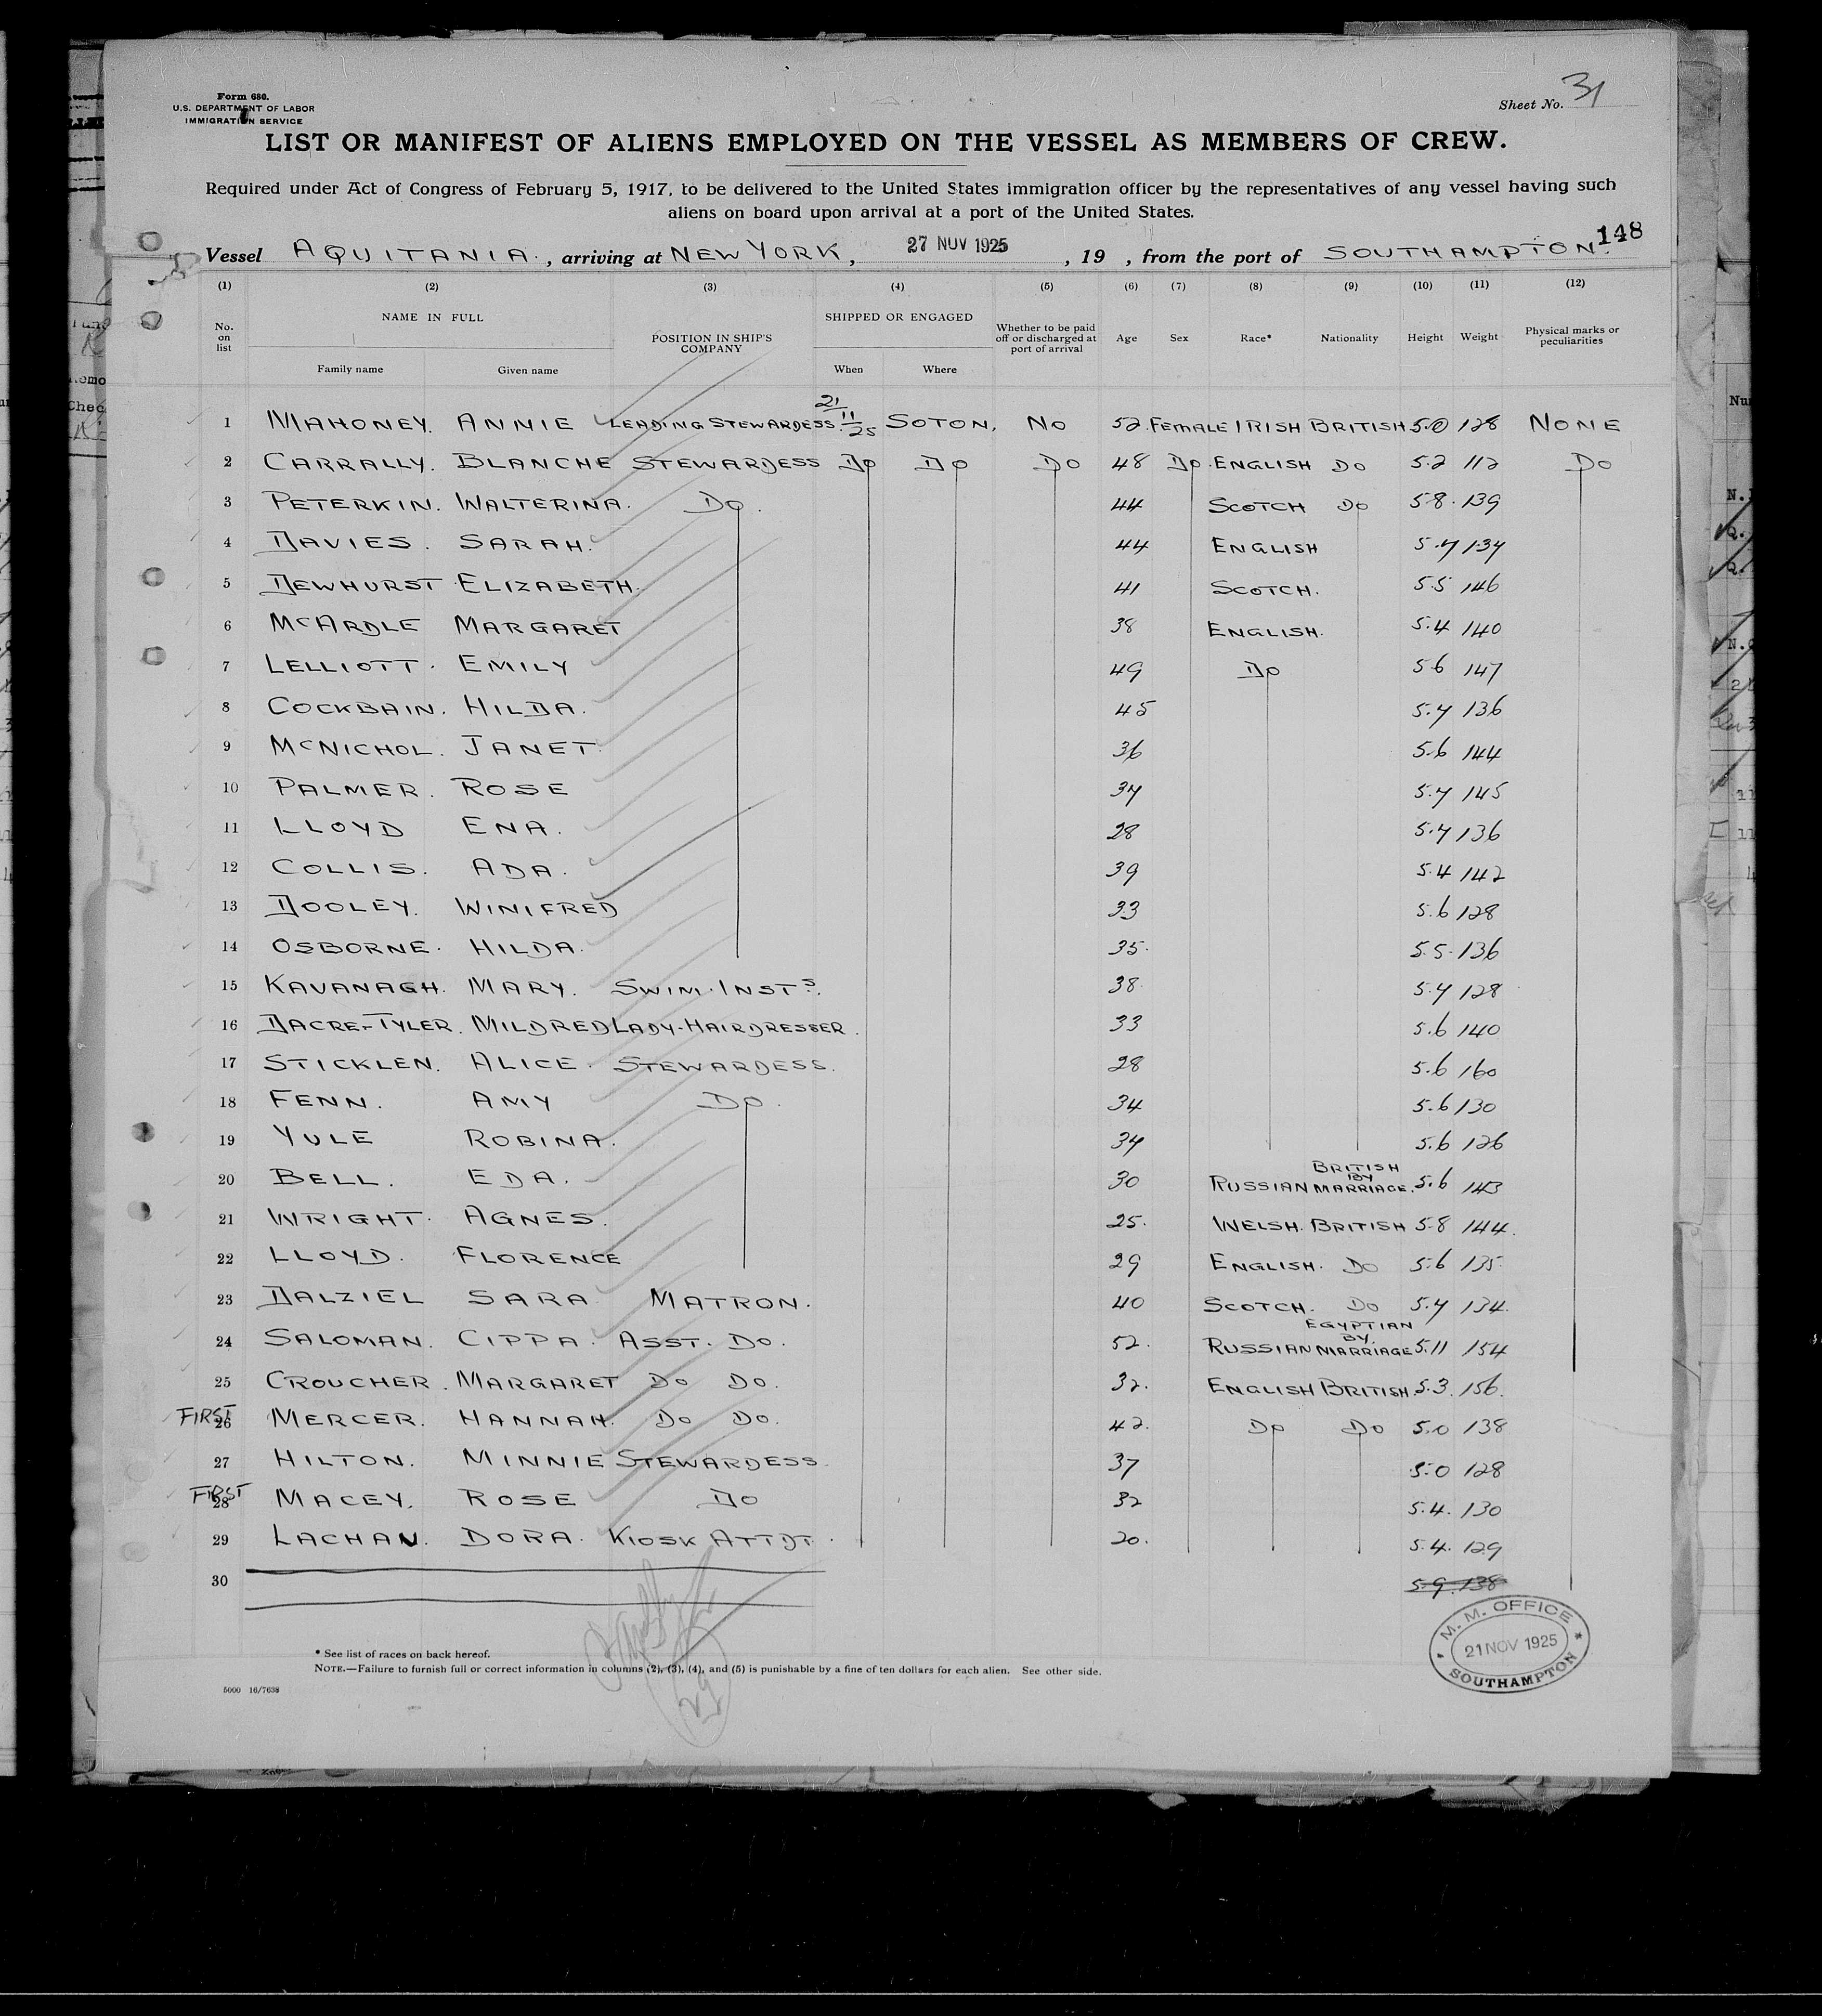 Form 680.
U.S. DEPARTMENT OF LABOR
IMMIGRATION SERVICE
Sheet No. 31
LIST OR MANIFEST OF ALIENS EMPLOYED ON THE VESSEL AS MEMBERS OF CREW.
Required under Act of Congress of February 5, 1917, to be delivered to the United States immigration officer by the representatives of any vessel having such
aliens on board upon arrival at a port of the United States.
148
Vessel AQUITANIA., arriving at NEW YORK, 27 NOV 1925, 19 , from the port of SOUTHAMPTON.
(1) (2) (3) (4) (5) (6) (7) (8) (9) (10) (11) (12)
No. on list NAME IN FULL Family name Given name POSITION IN SHIP'S COMPANY SHIPPED OR ENGAGED When Where Whether to be paid off or discharged at port of arrival Age Sex Race* Nationality Height Weight Physical marks or peculiarities
1 MAHONEY. ANNIE LEADING STEWARDESS. 21/11/25 SOTON. NO 52. FEMALE IRISH BRITISH 5.0 128 NONE
2 CARRALLY. BLANCHE STEWARDESS DO DO DO 48 DO. ENGLISH DO 5.2 112 DO
3 PETERKIN. WALTERINA. DO. 44 SCOTCH DO 5.8. 139
4 DAVIES. SARAH. 44 ENGLISH 5.7 137
5 DEWHURST ELIZABETH. 41 SCOTCH. 5.5 146
6 MCARDLE MARGARET 38 ENGLISH. 5.4 140
7 LELLIOTT. EMILY 49 DO 5.6 147
8 COCKBAIN. HILDA. 45 5.7 136
9 MCNICHOL. JANET. 36 5.6 144
10 PALMER. ROSE 37 5.7 145
11 LLOYD ENA. 28 5.7 136
12 COLLIS. ADA. 39 5.4 142
13 DOOLEY. WINIFRED 33 5.6 128
14 OSBORNE. HILDA. 35. 5.5. 136
15 KAVANAGH. MARY. SWIM. INSTS. 38. 5.7 128
16 DACRE-TYLER. MILDRED LADY-HAIRDRESSER. 33 5.6 140
17 STICKLEN. ALICE. STEWARDESS. 28 5.6 160
18 FENN. AMY DO. 34 5.6 130
19 YULE ROBINA. 37 5.6 126
20 BELL. EDA. 30 RUSSIAN BRITISH BY MARRIAGE. 5.6 143
21 WRIGHT. AGNES. 25. WELSH. BRITISH 5.8 144.
22 LLOYD. FLORENCE 29 ENGLISH. DO 5.6 135.
23 DALZIEL SARA MATRON. 40 SCOTCH. DO 5.7 134.
24 SALOMAN. CIPPA. ASST. DO. 52. RUSSIAN EGYPTIAN BY. MARRIAGE 5.11 154
25 CROUCHER. MARGARET DO DO. 32. ENGLISH BRITISH. 5.3. 156.
FIRST 26 MERCER. HANNAH. DO DO. 42. DO DO 5.0 138
27 HILTON. MINNIE STEWARDESS. 37 5.0 128
FIRST 28 MACEY. ROSE DO 32 5.4. 130
29 LACHAN. DORA. KIOSK ATTDT. 20. 5.4. 129
30 5.9. 138
M. M. OFFICE
21 NOV 1925
SOUTHAMPTON
* See list of races on back hereof.
NOTE.—Failure to furnish full or correct information in columns (2), (3), (4), and (5) is punishable by a fine of ten dollars for each alien. See other side.
29
5000 16/7638